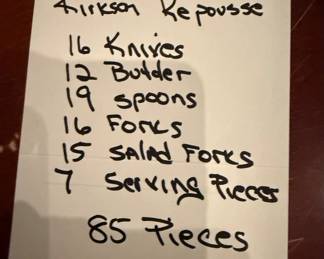 Kirkson Repousse
16 Knives
12 Butder
19 spoons
16 Forks
15 Salad Forks
7 Serving Pieces
85 Pieces